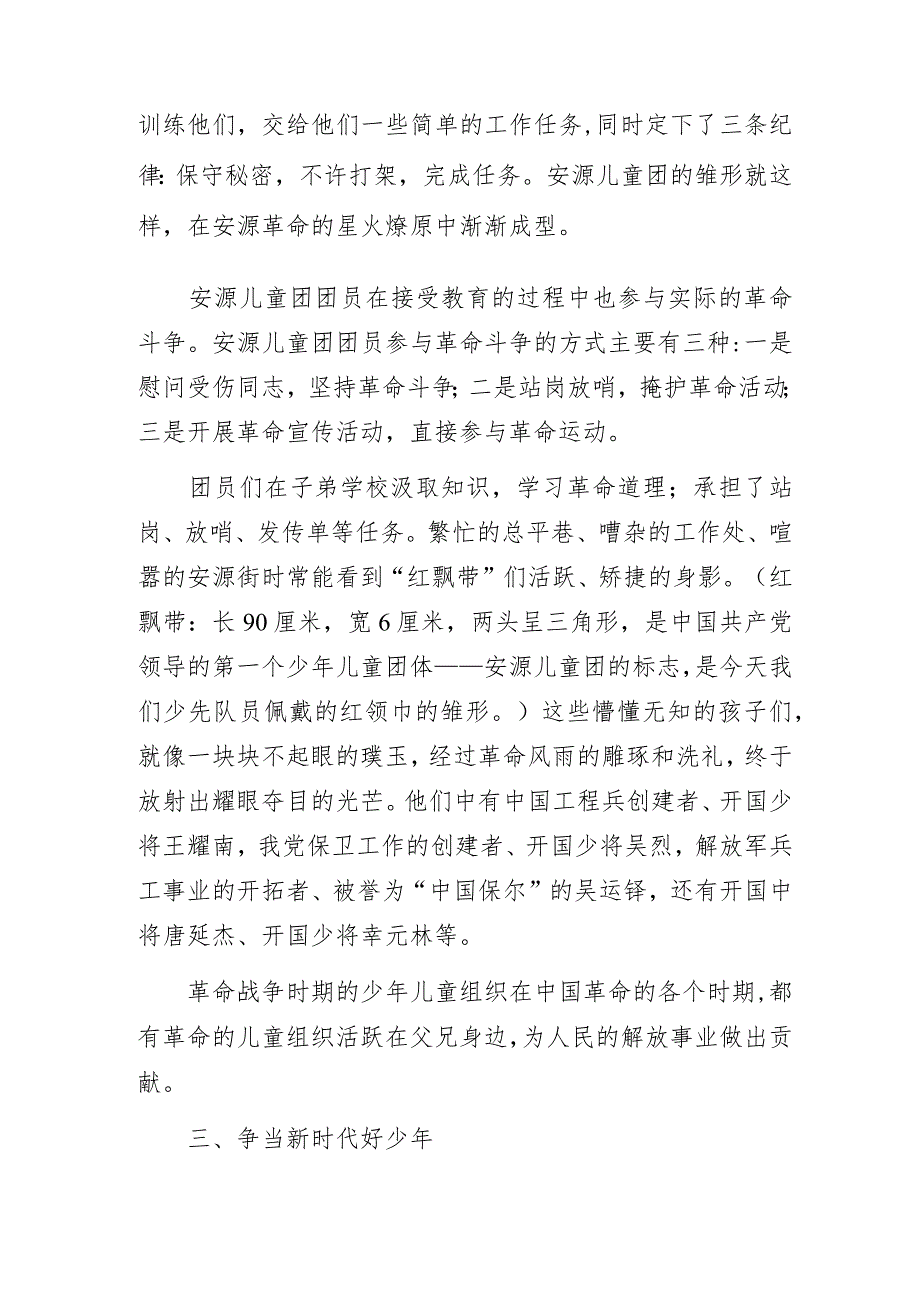 训练他们，交给他们一些简单的工作任务,同时定下了三条纪
律：保守秘密，不许打架，完成任务。安源儿童团的雏形就这
样，在安源革命的星火燎原中渐渐成型。
安源儿童团团员在接受教育的过程中也参与实际的革命
斗争。安源儿童团团员参与革命斗争的方式主要有三种:一是
慰问受伤同志，坚持革命斗争；二是站岗放哨，掩护革命活动；
三是开展革命宣传活动，直接参与革命运动。
团员们在子弟学校汲取知识，学习革命道理；承担了站
岗、放哨、发传单等任务。繁忙的总平巷、嘈杂的工作处、喧
嚣的安源街时常能看到“红飘带”们活跃、矫捷的身影。（红
飘带：长 90 厘米，宽 6 厘米，两头呈三角形，是中国共产党
领导的第一个少年儿童团体——安源儿童团的标志，是今天我
们少先队员佩戴的红领巾的雏形。）这些懵懂无知的孩子们，
就像一块块不起眼的璞玉，经过革命风雨的雕琢和洗礼，终于
放射出耀眼夺目的光芒。他们中有中国工程兵创建者、开国少
将王耀南，我党保卫工作的创建者、开国少将吴烈，解放军兵
工事业的开拓者、被誉为“中国保尔”的吴运铎，还有开国中
将唐延杰、开国少将幸元林等。
革命战争时期的少年儿童组织在中国革命的各个时期,都
有革命的儿童组织活跃在父兄身边,为人民的解放事业做出贡
献。
三、争当新时代好少年